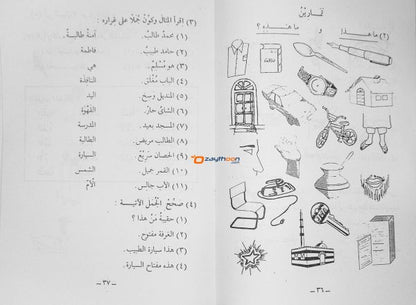 تمارين
(٢) ما هذا و ما هذه ؟
- ٣٦ -
(٣) اقرأ المثال وكون جملا على غراره :
(١) محمد طالب. آمنة طالبة.
(٢) حامد طبيب. فاطمة
(٣) هو مسلم. هي
(٤) الباب مغلق. النافذة
(٥) المنديل وسخ. اليد
(٦) الشاي حار. القهوة
(٧) المسجد بعيد. المدرسة
(٨) الطالب مريض. الطالبة
(٩) الحصان سريع. السيارة
(١٠) القمر جميل. الشمس
(١١) الأب جالس. الأم
(٤) صحح الجمل الآتية :
(١) حقيبة من هذا ؟
(٢) الغرفة مفتوح.
(٣) هذا سيارة الطبيب.
(٤) هذه مفتاح السيارة.
- ٣٧ -
zaythoon